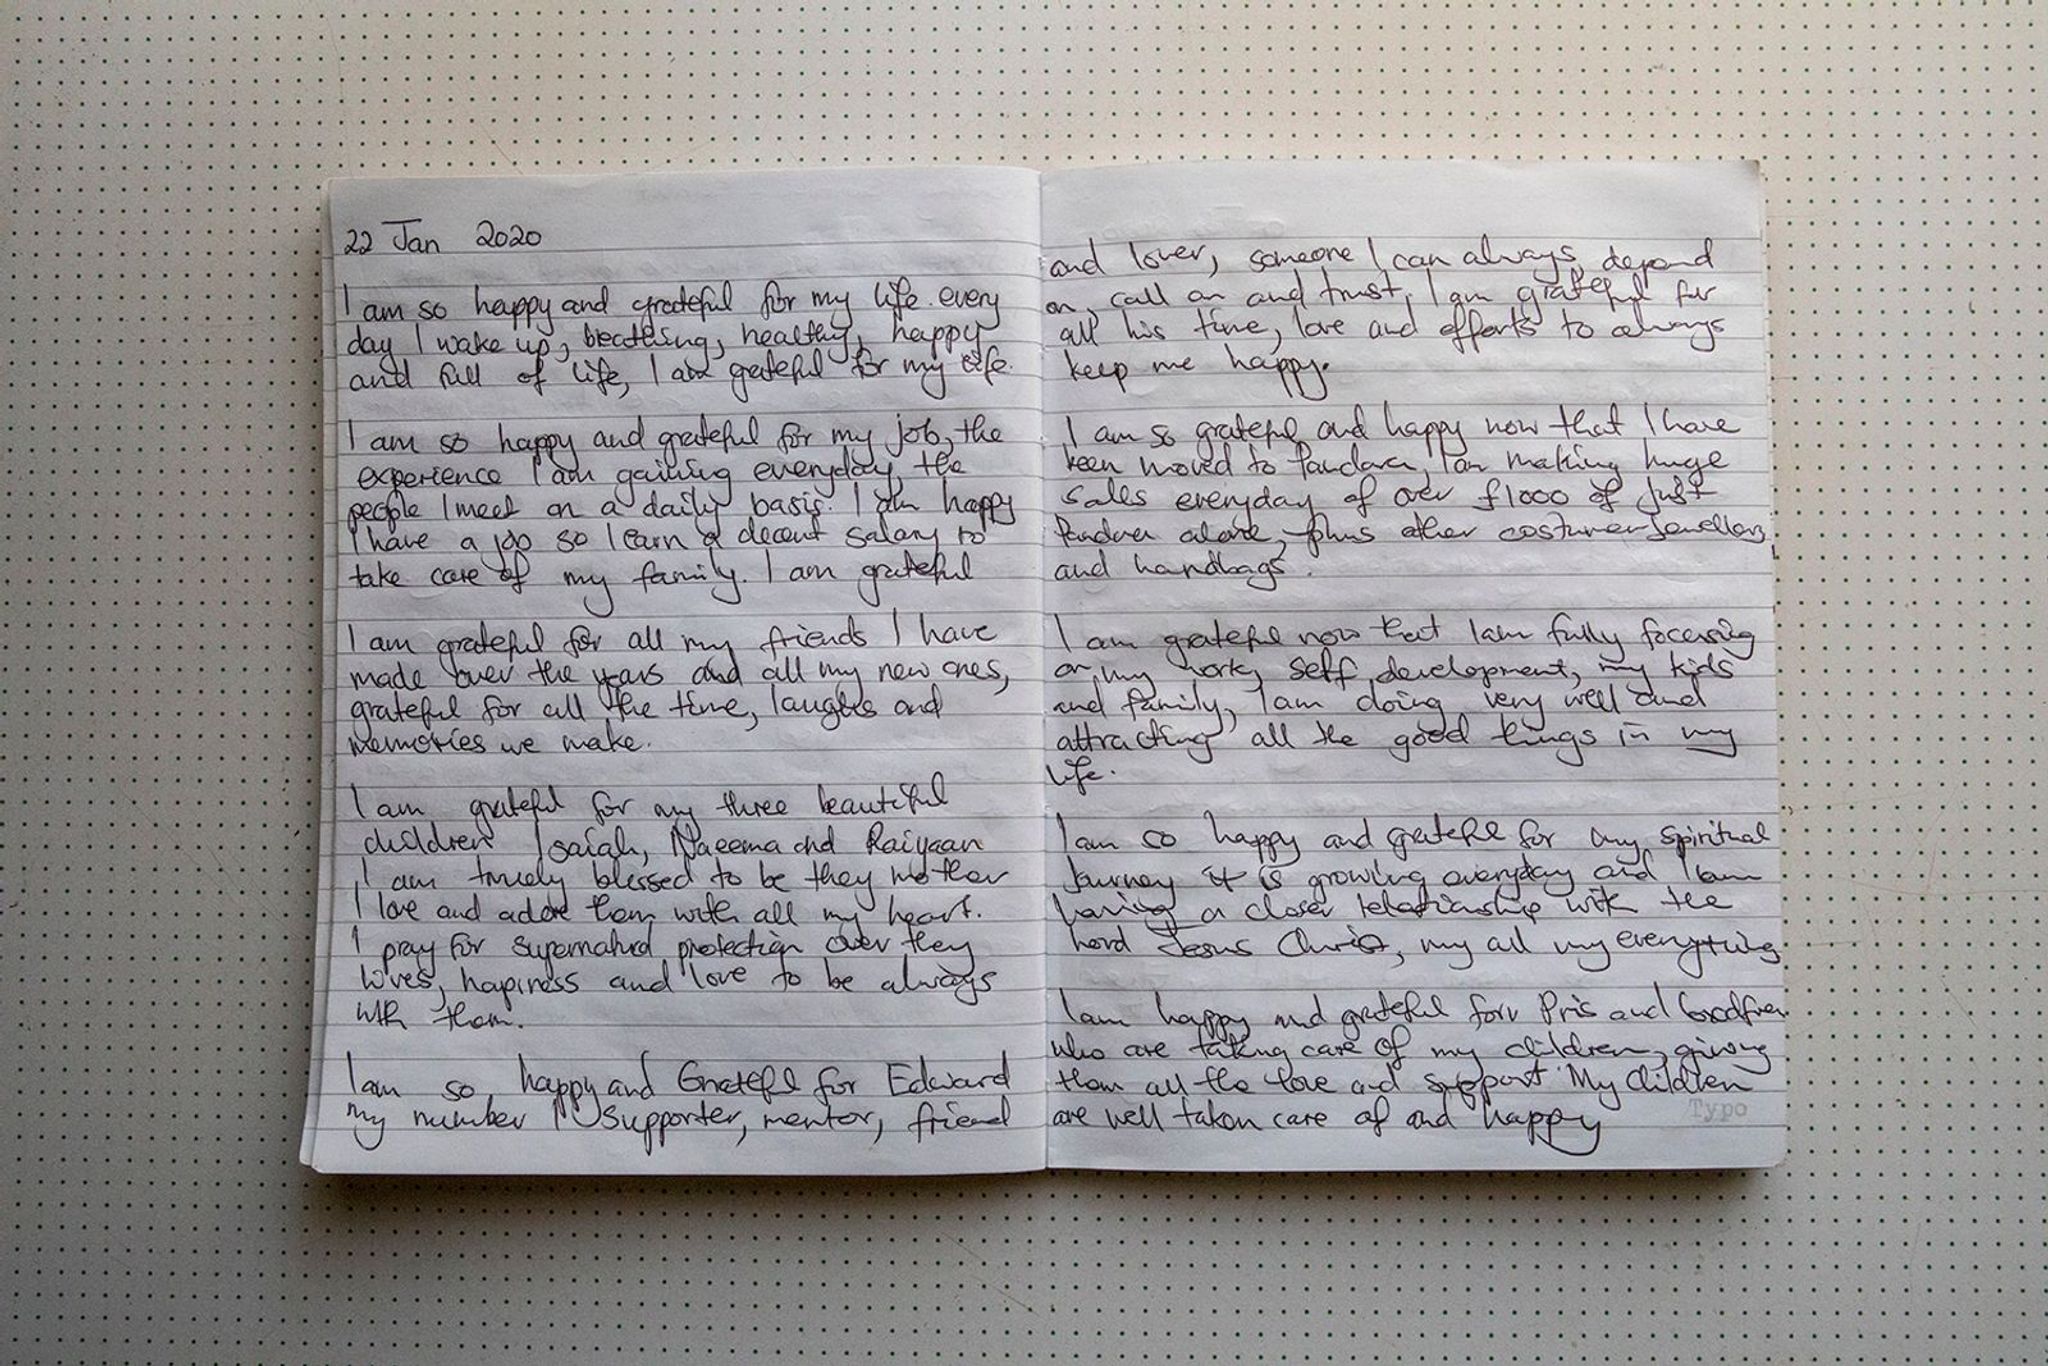 22 Jan 2020
I am so happy and grateful for my life. every
day I wake up, breathing, healthy, happy
and full of life, I am grateful for my life.
I am so happy and grateful for my job, the
experience I am gaining everyday, the
people I meet on a daily basis. I am happy
I have a job so I earn a decent salary to
take care of my family. I am grateful
I am grateful for all my friends I have
made over the years and all my new ones,
grateful for all the time, laughs and
memories we make.
I am grateful for my three beautiful
children Isaiah, Naeema and Raiyaan
I am truely blessed to be they mother
I love and adore them with all my heart.
I pray for supernatural protection over they
lives, hapiness and love to be always
with them.
I am so happy and Grateful for Edward
my number 1 supporter, mentor, friend
and lover, someone I can always depend
on, call on and trust, I am grateful for
all his time, love and efforts to always
keep me happy.
I am so grateful and happy now that I have
been moved to Pandora, I am making huge
sales everyday of over £1000 of just
Pandora alone, plus other costumer Jewellery
and handbags.
I am grateful now that I am fully focussing
on my work, self development, my kids
and family, I am doing very well and
attracting all the good things in my
life.
I am so happy and grateful for my spiritual
Journey it is growing everyday and I am
having a closer relationship with the
Lord Jesus Christ, my all my everything
I am happy and grateful for Pris and
who are taking care of my children, giving
them all the love and support. My Children
are well taken care of and happy
Typo